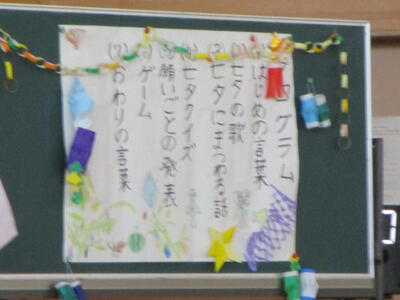 プログラム
(1)はじめの言葉
(2)七夕の歌
(3)七夕にまつわる話
(4)七夕クイズ
(5)願いごとの発表
(6)ゲーム
(7)おわりの言葉